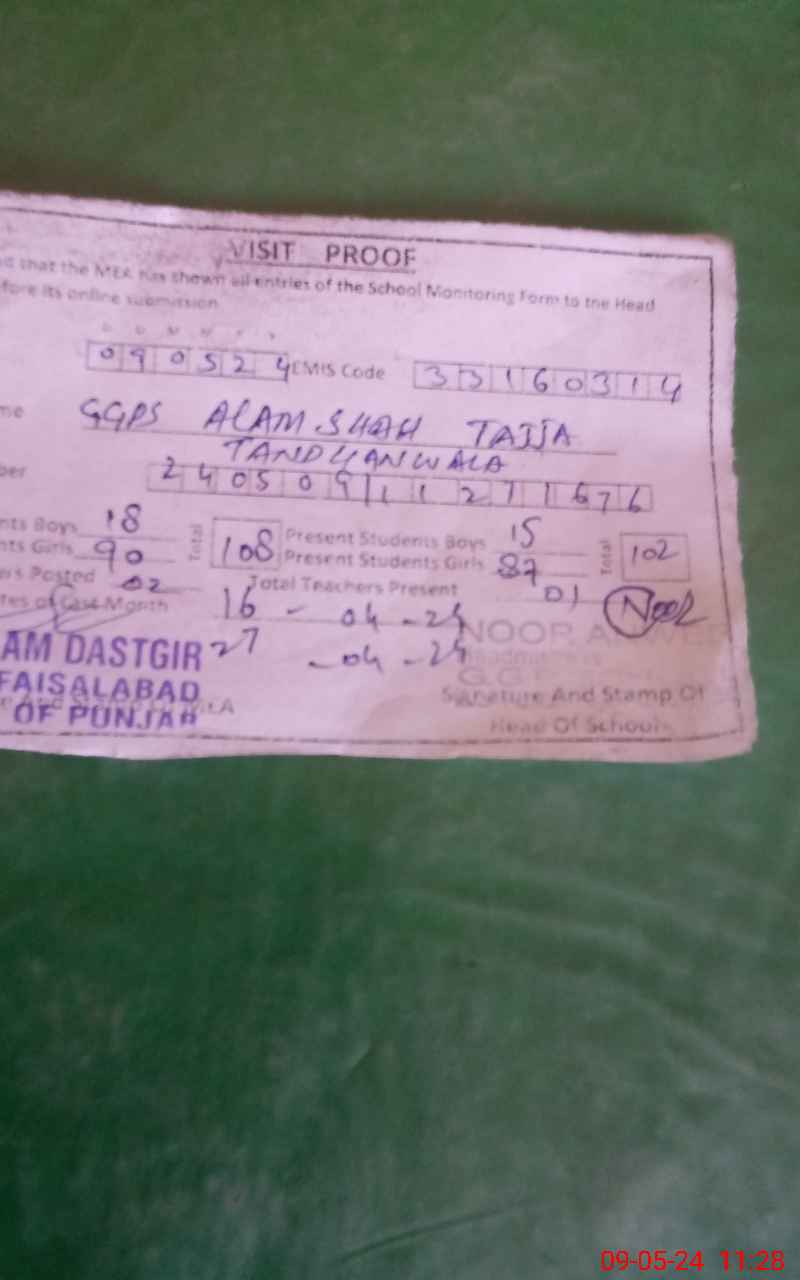 VISIT PROOF
that the MEA has shown all entries of the School Monitoring Form to the Head
fore its online submission
D D M M Y Y
090524 EMIS Code 33160314
me GGPS ALAM SHAH TAJJA
TANDLIANWALA
ber 24050911271676
nts Boys 18 Total 108 Present Students Boys 15 Total 102
nts Girls 90 Present Students Girls 87
ers Posted 02 Total Teachers Present 01
tes of Last Month 16 - 04 - 24 Noor
AM DASTGIR 27 - 04 - 24 NOOR
FAISALABAD
OF PUNJAB MEA Signature And Stamp Of
Head Of School
09-05-24 11:28